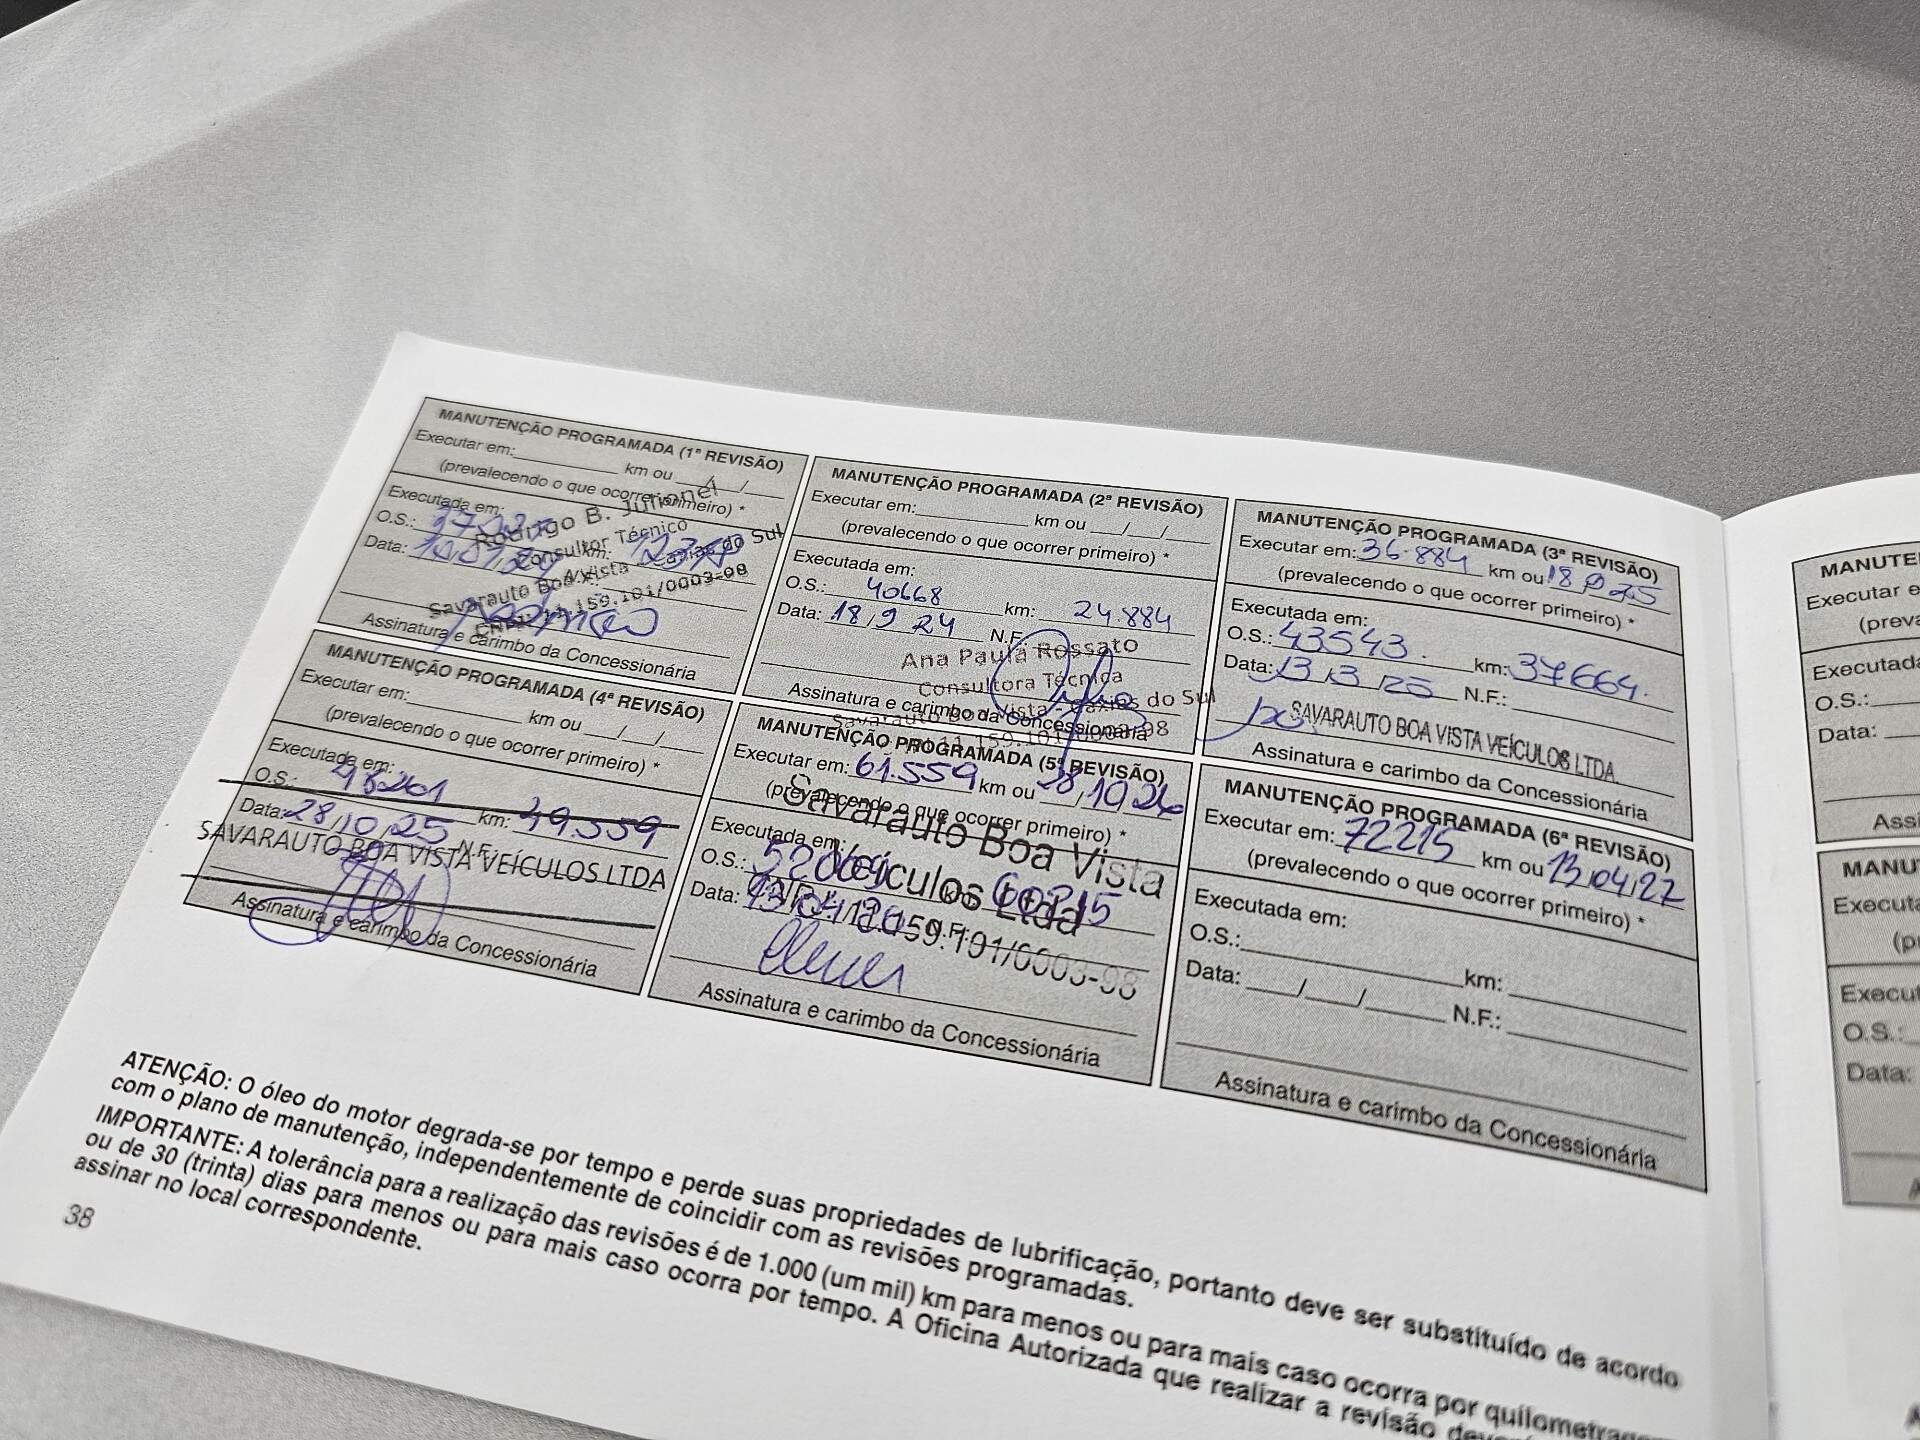 MANUTENÇÃO PROGRAMADA (1ª REVISÃO)
Executar em: km ou / /
(prevalecendo o que ocorrer primeiro) *
Executada em:
O.S.: km:
Data:
Rodrigo B.
Consultor Técnico
Savarauto Boa Vista Caxias do Sul
CNPJ: 11.159.101/0003-98
Assinatura e carimbo da Concessionária
MANUTENÇÃO PROGRAMADA (2ª REVISÃO)
Executar em: km ou / /
(prevalecendo o que ocorrer primeiro) *
Executada em:
O.S.: 40668 km: 24.884
Data: 18/9/24 N.F.:
Ana Paula Rossato
Consultora Técnica
Savarauto Boa Vista - Caxias do Sul
11.159.101/0003-98
Assinatura e carimbo da Concessionária
MANUTENÇÃO PROGRAMADA (3ª REVISÃO)
Executar em: 36.884 km ou 18/9/25
(prevalecendo o que ocorrer primeiro) *
Executada em:
O.S.: 43543. km: 37664.
Data: 13/3/25 N.F.:
SAVARAUTO BOA VISTA VEÍCULOS LTDA
Assinatura e carimbo da Concessionária
MANUTENÇÃO PROGRAMADA (4ª REVISÃO)
Executar em: km ou / /
(prevalecendo o que ocorrer primeiro) *
Executada em:
O.S.: 48261 km: 49.559
Data: 28/10/25 N.F.
SAVARAUTO BOA VISTA VEÍCULOS LTDA
Assinatura e carimbo da Concessionária
MANUTENÇÃO PROGRAMADA (5ª REVISÃO)
Executar em: 61.559 km ou 28/10/26
(prevalecendo o que ocorrer primeiro) *
Executada em:
O.S.: 52069 km: 60215
Data: 13/04/26 N.F.:
Savarauto Boa Vista
Veículos Ltda
CNPJ: 11.159.101/0003-98
Assinatura e carimbo da Concessionária
MANUTENÇÃO PROGRAMADA (6ª REVISÃO)
Executar em: 72215 km ou 13/04/27
(prevalecendo o que ocorrer primeiro) *
Executada em:
O.S.: km:
Data: / / N.F.:
Assinatura e carimbo da Concessionária
ATENÇÃO: O óleo do motor degrada-se por tempo e perde suas propriedades de lubrificação, portanto deve ser substituído de acordo
com o plano de manutenção, independentemente de coincidir com as revisões programadas.
IMPORTANTE: A tolerância para a realização das revisões é de 1.000 (um mil) km para menos ou para mais caso ocorra por quilometragem
ou de 30 (trinta) dias para menos ou para mais caso ocorra por tempo. A Oficina Autorizada que realizar a revisão
assinar no local correspondente.
38
MANUTE
Executar e
(preva
Executada
O.S.:
Data:
Assi
MANU
Executa
(p
Execut
O.S.:
Data: